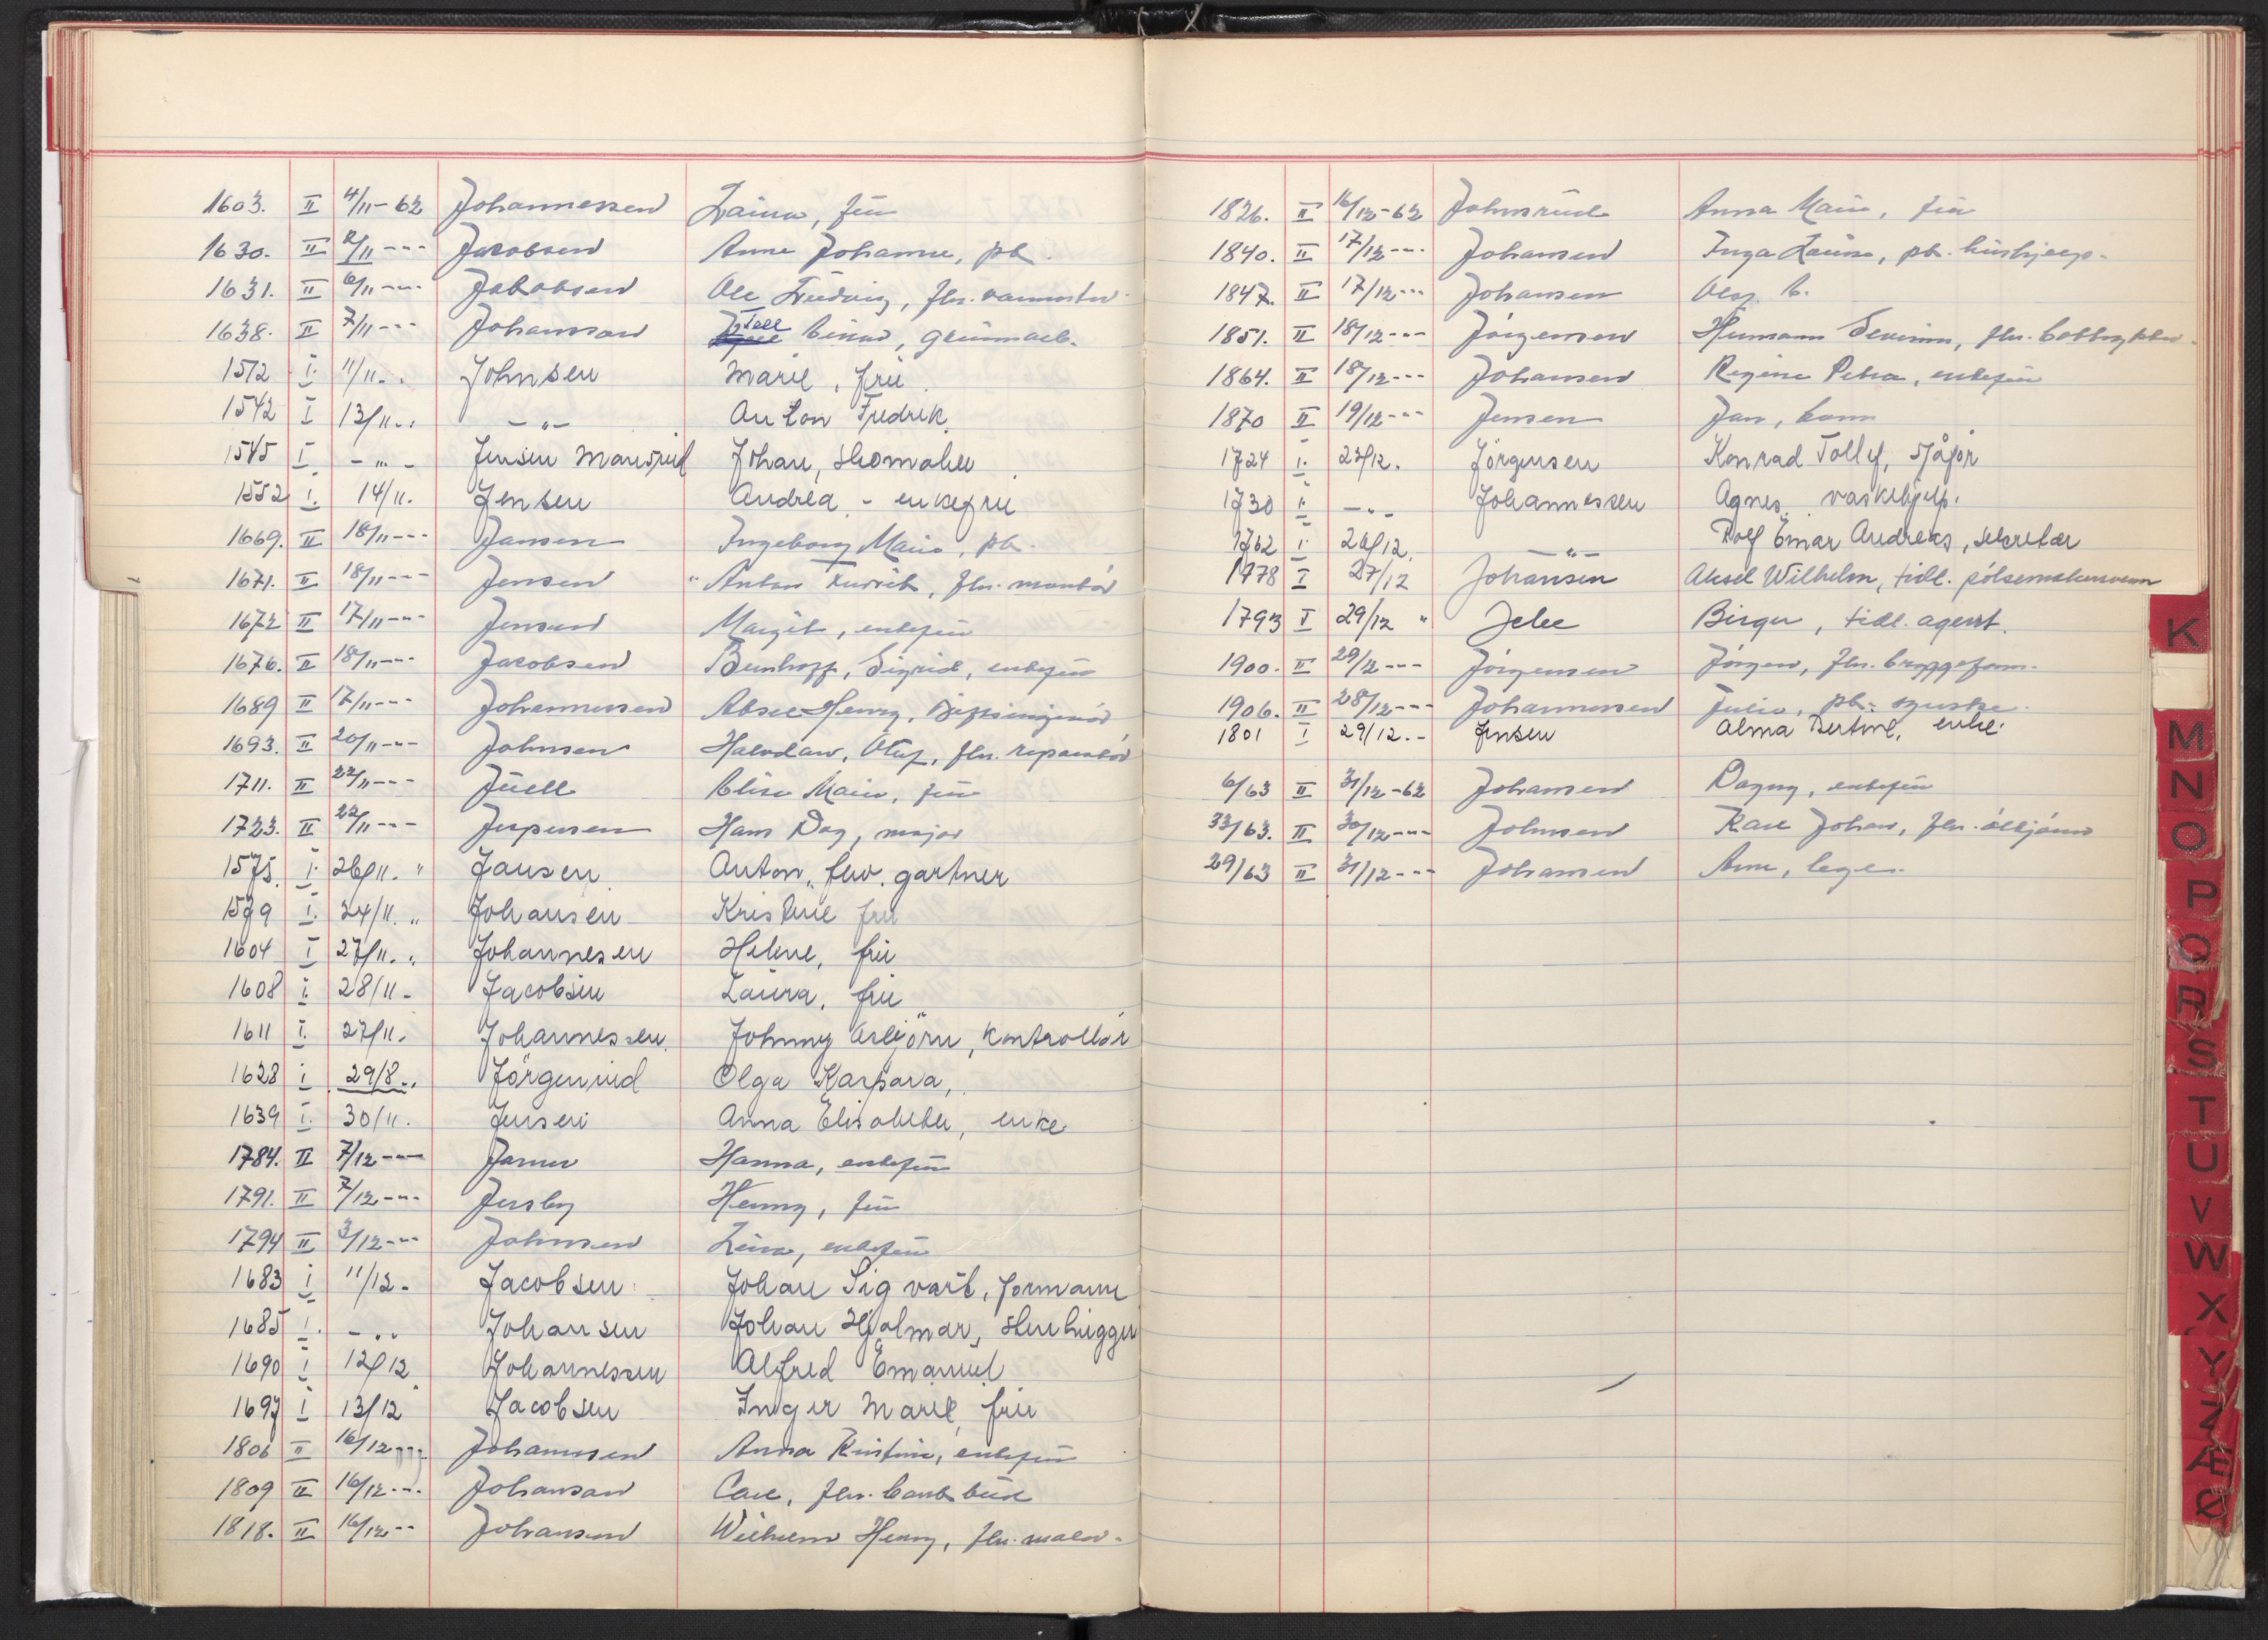 1603. II 4/11-62 Johannessen Laura, frü
1630. II 2/11 --- Jacobsen Anne Johanne, pk.
1631. II 6/11 --- Jakobsen Ole Ludvig, fhv.
1638. II 7/11 --- Johansson Einar,
1512 I. 11/11. Johnsen Marie, frü.
1542 I 13/11.. -"- Anton Fredrik.
1545 I. -"- Jensen Johan, skomaker
1552 I. 14/11. Jensen Andrea - enkefrü
1669. II 18/11 --- Jansen Ingeborg Marie, pk.
1671. II 18/11 --- Jensen Anton Fredrik, fhv. montör
1672 II 17/11 --- Jensen Margit, enkefrü
1676. II 18/11 --- Jacobsen Sigrid, enkefrü
1689 II 17/11 --- Johannessen Henry,
1693. II 20/11 --- Johnsen Halvdan, Olaf, fhv. reparatör
1711. II 22/11 --- Jüell Elise Marie, frü
1723. II 22/11 --- Jespersen Hans Dag, major
1575. I. 26/11. " Jansen Anton, fhv. gartner
1579 I. 24/11. " Johansen Kristine frü
1604 I 27/11. " Johannesen Helene, frü
1608 I. 28/11 - Jacobsen Laüra, frü
1611 I. 27/11. Johannessen. Johnny Asbjörn, Kontrollör
1628 I 29/8.. Jörgenrud Olga Kaspara,
1639 I. 30/11. Jensen Anna Elisabeth, enke
1784. II 7/12 --- Hanna, enkefrü
1791. II 7/12 --- Jersby Henny, frü
1794 II 3/12 --- Johnsen enkefrü
1683 I 11/12 - Jacobsen Johan Sigvart, formann
1685 I. - " Johansen Johan Hjalmar, stenhugger
1690 I 12/12 Johannessen Alfred Emanuel
1697 I 13/12 Jacobsen Inger Marie, frü
1806 II 16/12 --- Johannesen Anna Kristine, enkefrü
1809 II 16/12 --- Johansen Carl, fhv.
1818. II 16/12 -- Johansen Wilhelm Henry, fhv. maler.
1826. II 16/12-62 Johnsrüd Anna Marie, frü
1840. II 17/12 --- Johansen Inga Laura, pk. hüshjelp.
1847. II 17/12 --- Johansen
1851. II 18/12 --- Jörgensen Hermann Severin, fhv.
1864. II 18/12 --- Johansen Regine Petra, enkefrü
1870 II 19/12 --- Jensen Jan, barn
1724 I. 23/12. Jörgensen Konrad Tollef, sjåför
1730 I. -"- Johannessen Agnes, vaskehjelp.
1762 I 26/12. -"- Rolf Einar Andreas, sekretær
1778 I 27/12 Johansen Aksel Wilhelm, tidl. pölsemaker
1793 I 29/12 " Birger, tidl. agent.
1900. II 29/12 --- Jörgensen Jörgen, fhv. bryggeform.
1906. II 28/12 --- Johannessen Julie, pk. syerske.
1801 I 29/12.- Jensen Alma Bertine, enke.
6/63 II 31/12-62 Johansen Dagny, enkefrü
33/63. II 30/12 --- Johnsen Karl Johan, fhv. ölkjörer
29/63 II 31/12 --- Johansen Arne, lege.
K
M
N
O
P
Q
R
S
T
U
V
W
X
Y
Z
Æ
Ø